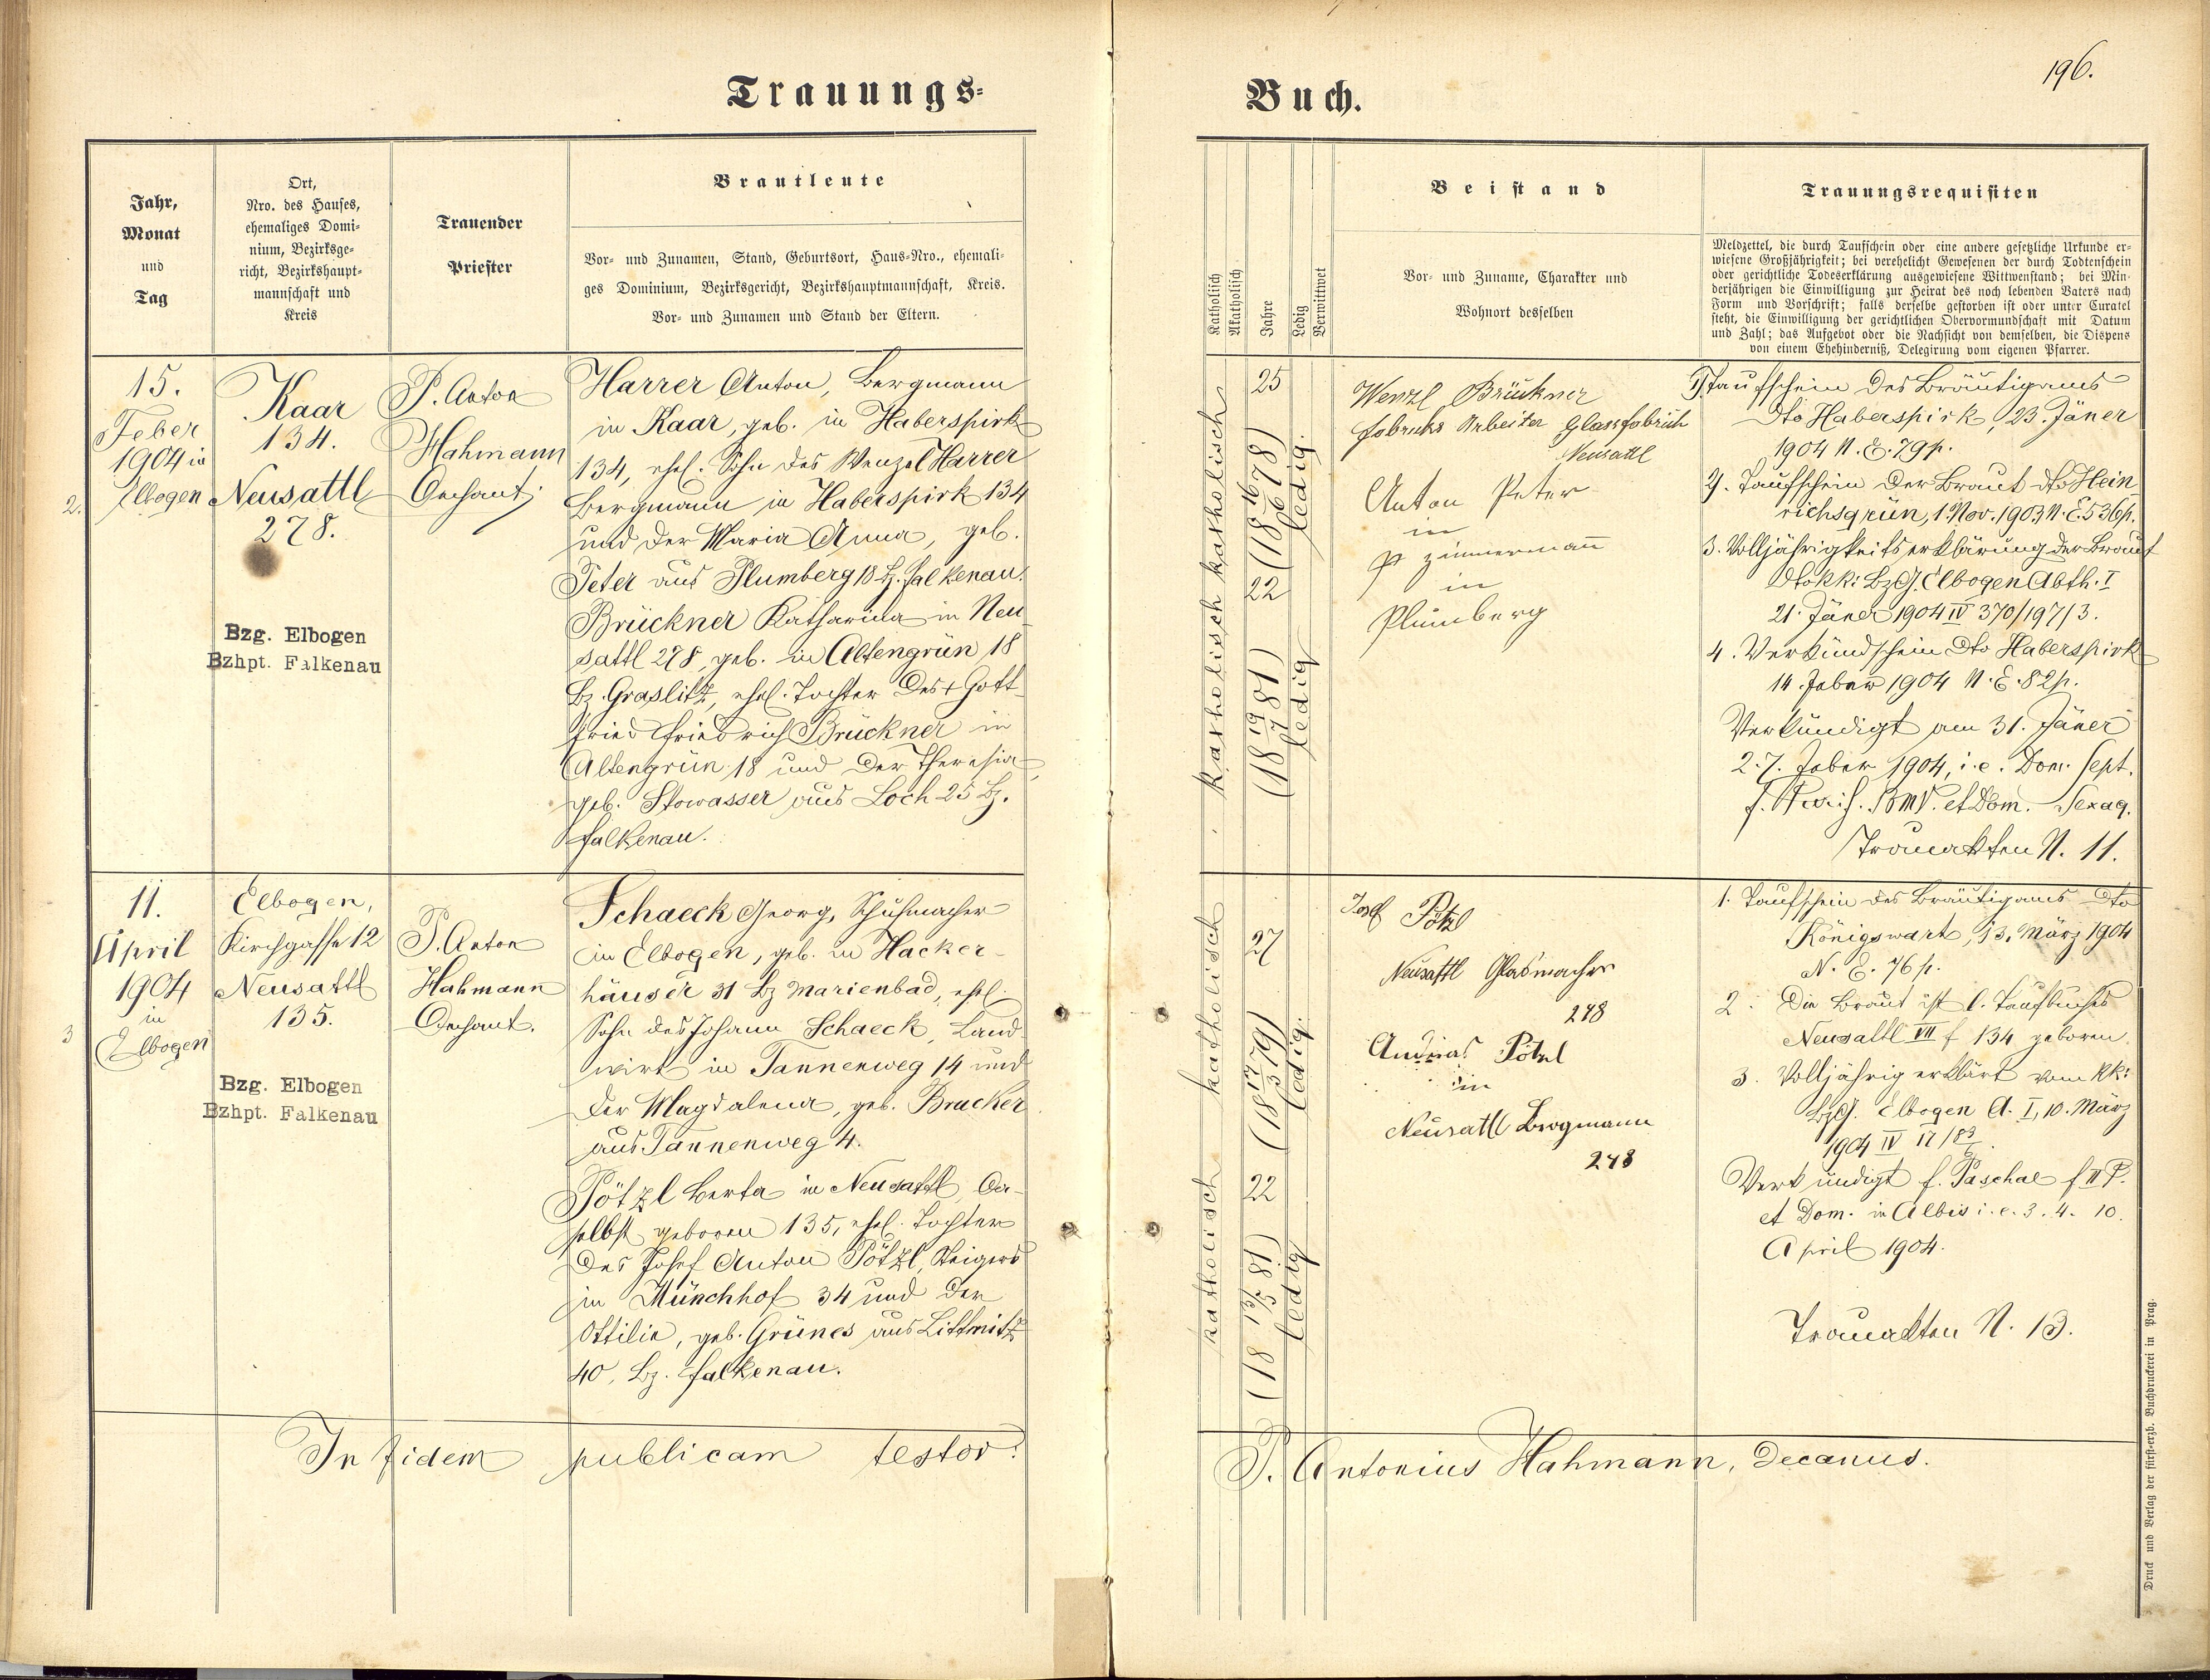 Trauungs-
Buch.
196.
Jahr,
Monat
und
Tag
Ort,
Nro. des Hauses,
ehemaliges Domi-
nium, Bezirksge-
richt, Bezirkshaupt-
mannschaft und
Kreis
Trauender
Priester
Brautleute
Vor- und Zunamen, Stand, Geburtsort, Haus-Nro., ehemali-
ges Dominium, Bezirksgericht, Bezirkshauptmannschaft, Kreis.
Vor- und Zunamen und Stand der Eltern.
Katholisch
Akatholisch
Jahre
Ledig
Verwittwet
Beistand
Vor- und Zuname, Charakter und
Wohnort desselben
Trauungsrequisiten
Meldzettel, die durch Taufschein oder eine andere gesetzliche Urkunde er-
wiesene Großjährigkeit; bei verehelicht Gewesenen der durch Todtenschein
oder gerichtliche Todeserklärung ausgewiesene Wittwenstand; bei Min-
derjährigen die Einwilligung zur Heirat des noch lebenden Vaters nach
Form und Vorschrift; falls derselbe gestorben ist oder unter Curatel
steht, die Einwilligung der gerichtlichen Obervormundschaft mit Datum
und Zahl; das Aufgebot oder die Nachsicht von demselben, die Dispens
von einem Ehehinderniß, Delegirung vom eigenen Pfarrer.
2.
15.
Feber
1904 in
Elbogen
Kaar
134.
Neusattl
278.
Bzg. Elbogen
Bzhpt. Falkenau
P. Anton
Hahmann
Dechant.
Harrer Anton, Bergmann
in Kaar, geb. in Haberspirk
134, ehel. Sohn des Wenzel Harrer
Bergmann in Haberspirk 134
und der Maria Anna, geb.
Peter aus Plumberg 18 Bz. Falkenau.
Brückner Katharina in Neu-
sattl 278, geb. in Altengrün 18
Bz. Graslitz, ehel. Tochter des + Gott-
fried Friedrich Brückner in
Altengrün 18 und der Theresia,
geb. Stowasser aus Loch 25 Bz.
Falkenau.
katholisch katholisch
25
(18 16/6 78)
ledig.
22
(18 19/7 81)
ledig
Wenzl Brückner
fabriks Arbeiter Glassfabrick
Neusattl
Anton Peter
in
zimmermann
in
Plumberg
1) Taufschein des Bräutigams
dto Haberspirk, 23. Jäner
1904 N. E. 79 p.
2. Taufschein der Braut dto Hein-
richsgrün, 1. Nov. 1903 N. E. 536 p.
3. Volljährigkeitserklärung der Braut
dto kk: BzG. Elbogen Abth. I
21. Jäner 1904 IV 370/197/3.
4. Verkündschein dto Haberspirk
14. Feber 1904 N. E. 82 p.
Verkündigt am 31. Jäner
2. 7. Feber 1904, i. e. Dom. Sept.
f. Purif. BMV. et Dom. Sexag.
Trauakten N. 11.
3
11.
April
1904
in
Elbogen
Elbogen,
Kirchgasse 12
Neusattl
135.
Bzg. Elbogen
Bzhpt. Falkenau
P. Anton
Hahmann
Dechant.
Schaeck Georg, Schuhmacher
in Elbogen, geb. in Hacker-
häuser 31 Bz Marienbad, ehel.
Sohn des Johann Schaeck, Land-
wirt in Tannenweg 14 und
der Magdalena, geb. Brucker
aus Tannenweg 4.
Pötzl Berta in Neusattl, da-
selbst geboren 135, ehel. Tochter
des Josef Anton Pötzl, Steigers
in Münchhof 34 und der
Ottilie, geb. Grünes aus Littmitz
40, Bz. Falkenau.
katholisch katholisch
27
(18 17/3 79)
ledig.
22
(18 13/5 81)
ledig
Josef Pötzl
Neusattl Glasmacher
248
Andreas Pötzl
in
Neusattl Bergmann
248
1. Taufschein des Bräutigams dto
Königswart, 13. März 1904
N. E. 76 p.
2. Die Braut ist l. Taufbuches
Neusattl VII f 134 geboren.
3. Volljährig erklärt vom kk:
BzG. Elbogen A. I, 10. März
1904 IV 17/83
Verkündigt f. Paschae f II P.
et Dom. in Albis i. e. 3. 4. 10.
April 1904.
Trauakten N. 13.
In fidem publicam testor:
P. Antonius Hahmann, Decanus.
Druck und Verlag der fürst-erzb. Buchdruckerei in Prag.